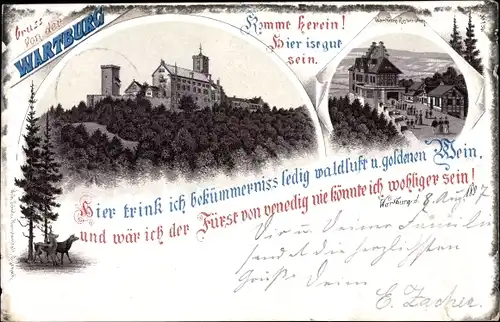 Gruss
von der
WARTBURG
Komme herein!
Hier ist gut
sein.
Hier trink ich bekümmerniss ledig waldluft u. goldenen Wein,
und wär ich der Fürst von venedig nie könnte ich wohliger sein!
Wartburg d. 8. Aug. 1897
Dir u. Deiner Familie
sendet die herzlichsten
Grüße Dein
E. Zacher